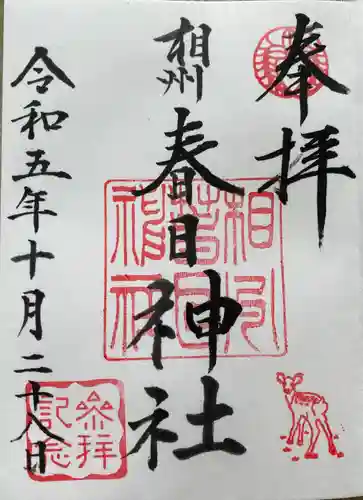 奉拝
相州
春日神社
相州春日神社
令和五年十月二十八日
参拝記念